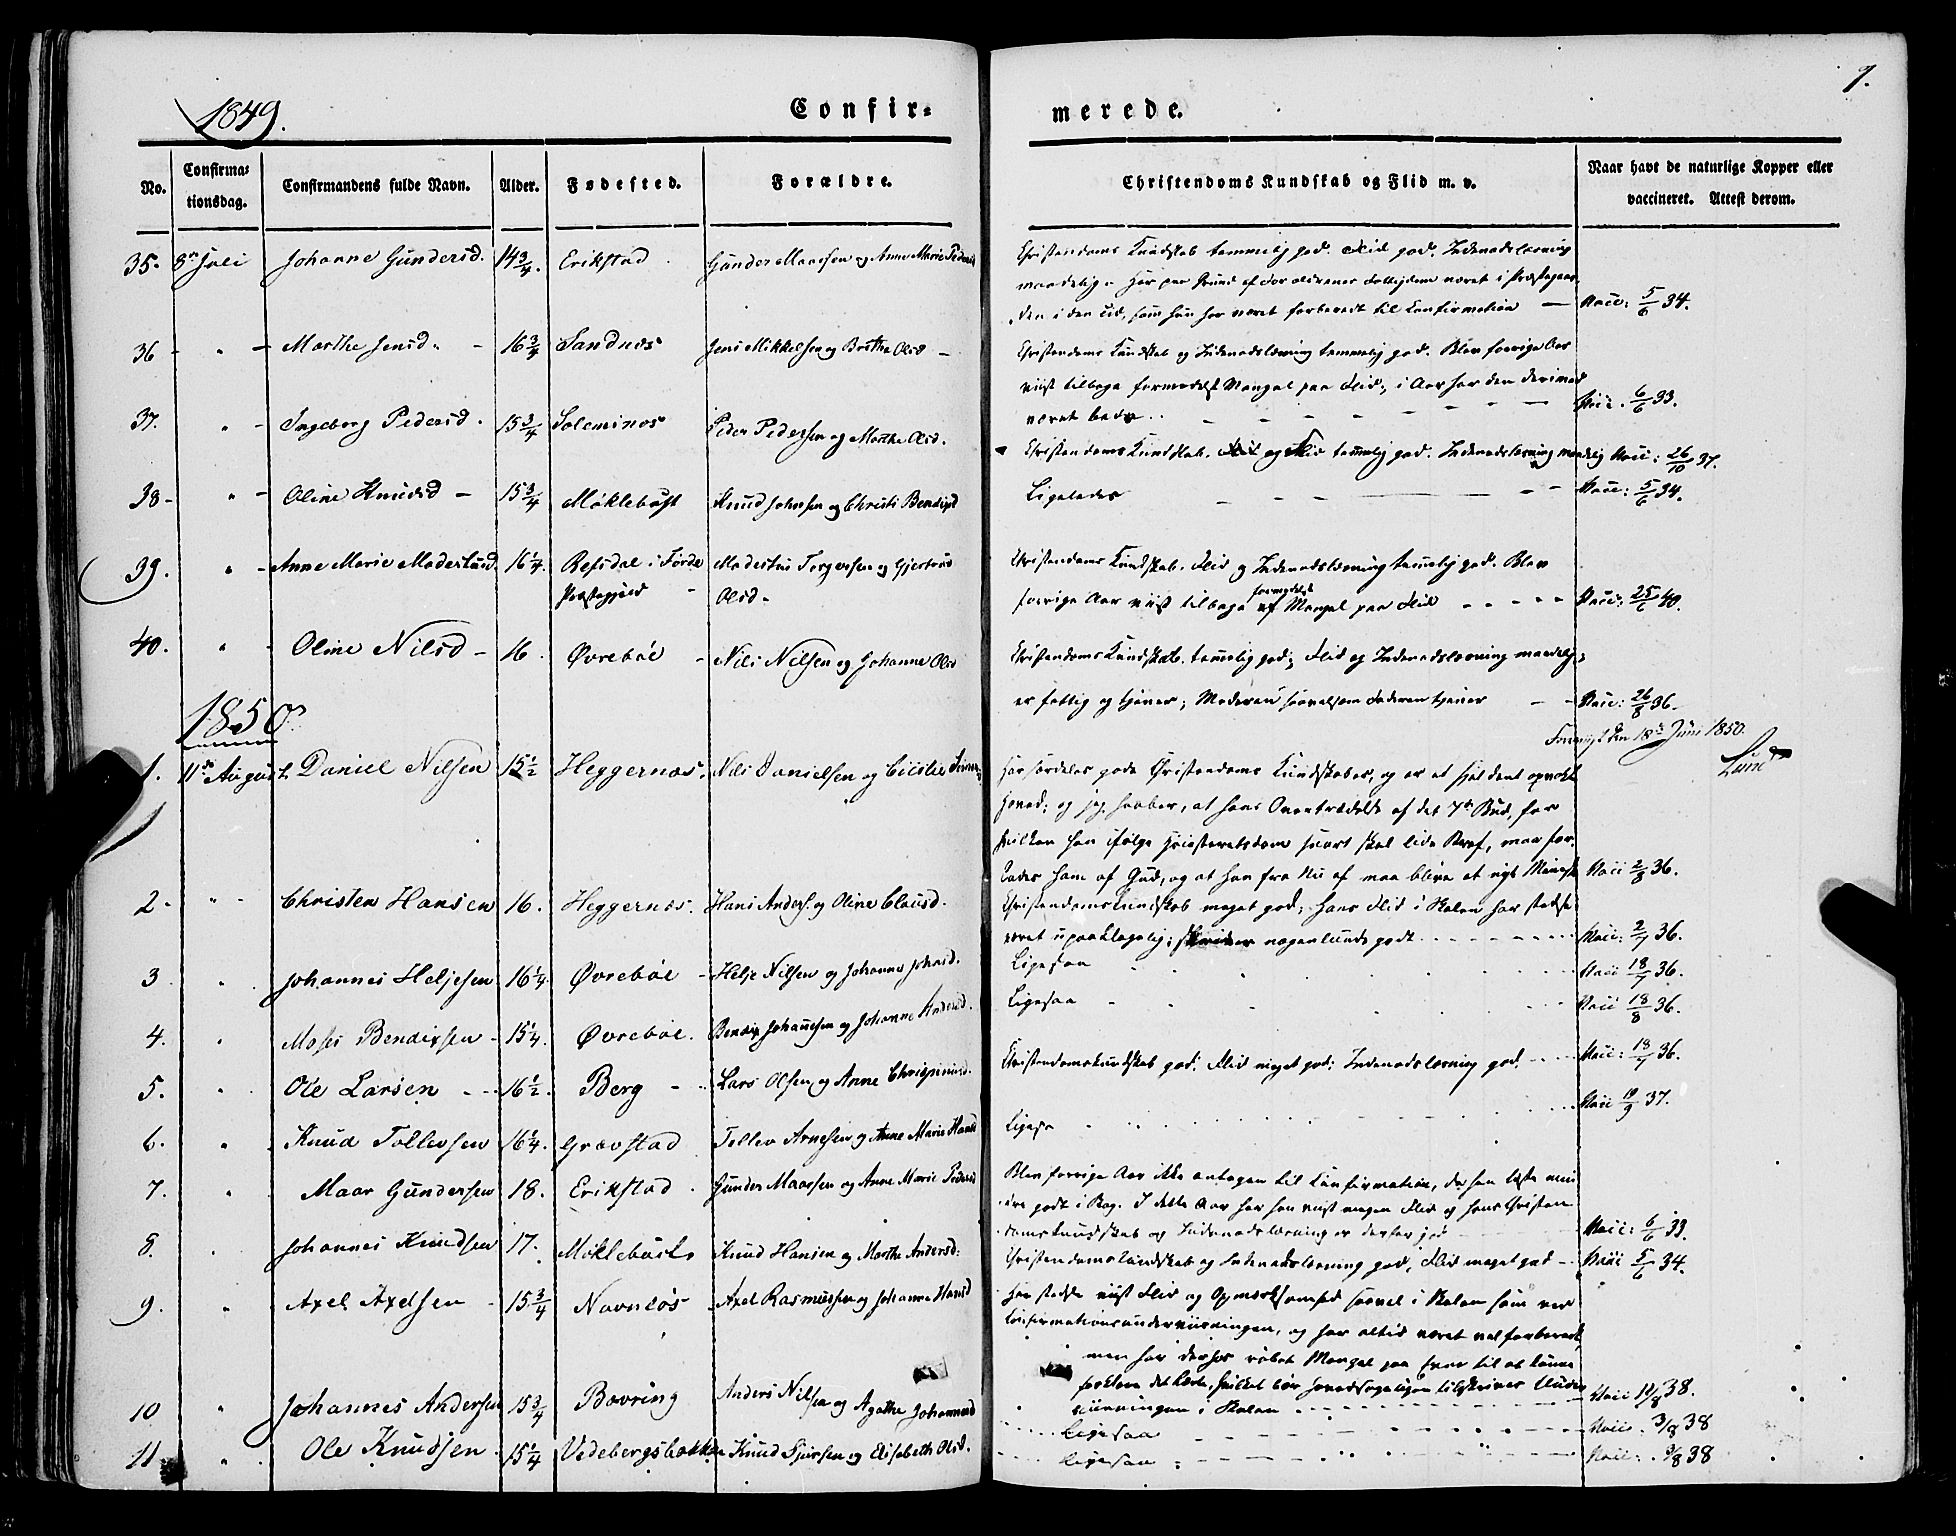 1849.
Confir=
merede.
9.
No.
Confirma=
tionsdag.
Confirmandens fulde Navn.
Alder.
Fødested.
Forældre.
Christendoms Kundskab og Flid m. v.
Naar havt de naturlige Kopper eller
vaccineret. Attest derom.
35. 8de Juli Johanne Gundersd. 14 3/4. Erikstad Gunder Maassen og Anne Marie Pedersd
Christendoms Kundskab temmelig god. Flid god. Indenadslæsning
maadelig. Har paa Grund af Forældrenes været i
den i den Tid, som hun har været forberedt til Confirmation — Vacc: 5/6 34.
36 - " - Marthe Jensd. - 16 3/4 Sandnæs Jens Mikkelsen og Birthe Olsd -
Christendoms Kundskab og Indenadslæsning temmelig god. Blev forrige Aar
viist tilbage formedelst Mangel paa Flid; i Aar har den derimod
været bedre. - - - Vacc. 6/6 33.
37. " - Ingeborg Pedersd. 15 3/4 Peder Pedersen og Marthe Olsd.
Christendoms Kundskab. og Flid temmelig god. Indenadslæsning maadelig Vacc: 26/10 37.
38 - " - Oline Knudsd - 15 3/4 Møklebust Knud Johnsen og Christi Bendixd
Ligeledes - - - Vacc: 5/6 34.
39. " - Anne Marie Madestusd. 16 1/4. Refsdal i Førde Madestus Torgersen og Gjertrud
Præstegjeld - Olsd -
Christendoms Kundskab. Flid og Indenadslæsning temmelig god. Blev
formedelst
forrige Aar viist tilbage af Mangel paa Flid - - - Vacc: 25/6 40.
40. " - Oline Nilsd - 16. Øvrebøe - Nils Nilsen og Johanne Olsd
Christendoms Kundskab. temmelig god; Flid og Indenadslæsning maadelig;
er fattig og tjener; Moderen saavelsom Faderen tjener - - Vacc: 26/8 36.
1850.
den 18de Juni 1850.
Lund
1. 11te August. Daniel Nilsen 15 1/2 Heggernæs. Nils Danielsen og Cicilie
Har særdeles gode Christendoms Kundskaber, og er et sjeldent opvakt
Hoved; og jeg haaber, at hans Overtrædelse af det 7de Bud, for
hvilken han ifølge Høiesteretsdom snart skal lide Straf, maa for=
lades ham af Gud, og at han fra Nu af maa blive et nyt Menneske Vacc 2/8 36.
2. " - Christen Hansen 16. Heggernæs. Hans Anders. og Oline Clausd.
Christendomskundskab meget god; hans Flid i Skolen har stedse
været upaaklagelig; skriver nogenlunde godt - - - Vacc: 2/7 36.
3 " Johannes Heljesen 16 1/4. Øvrebøe - Helje Nilsen og Johanne Johnsd.
Ligesaa Vacc 18/7 36.
4. " Moses Bendixsen - 15 1/4. Øvrebøe. Bendix Johannesen og Johanne Andersd.
Ligesaa - Vacc 18/8 36.
5. " Ole Larsen - - 16 1/2. Berg - - Lars Olsen og Anne
Christendomskundskab god; Flid meget god; Indenadslæsning god. - - Vacc: 18/7 36.
6. " Knud Tollevsen 16 1/4. Gravstad Tollev Arnesen og Anne Marie Hansd
Ligesaa - - - Vacc 37.
7. " Maar Gundersen 18. Erikstad. Gunder Maarsen og Anne Marie Pedersd
Blev forrige Aar ikke antagen til Confirmation, da han læste min=
dre godt i Bog. I dette Aar har han viist megen Flid og hans Christen
domskundskab og Indenadslæsning er derfor god Vacc: 6/6 33.
8. " Johannes Knudsen 17. Møklebust Knud Hansen og Marthe Andersd:
Christendomskundskab og Indenadslæsning god; Flid meget god - - Vacc 5/6 34.
9. " Axel Axelsen - 15 3/4 Navnløs Axel Rasmussen og Johanne Hansd
Har stedse viist Flid og Opmærksomhed saavel i Skolen som ved
Confirmationsunderviisningen, og har altid været vel forberedt,
men har derhos røbet Mangel paa Evne til at kunne
forklare det Lærte, hvilket bør hovedsagelig tilskrives Under
viisningen i Skolen - - - Vacc 38.
10 " Johannes Andersen 15 3/4 Bovring Anders Nilsen og Agathe Johannesd
Ligesaa - - - Vacc. 3/8 38
11 " Ole Knudsen. 15 1/4 Vedebergsbakke Knud og Elisabeth Olsd.
Ligesaa - - - Vacc: 3/8 38